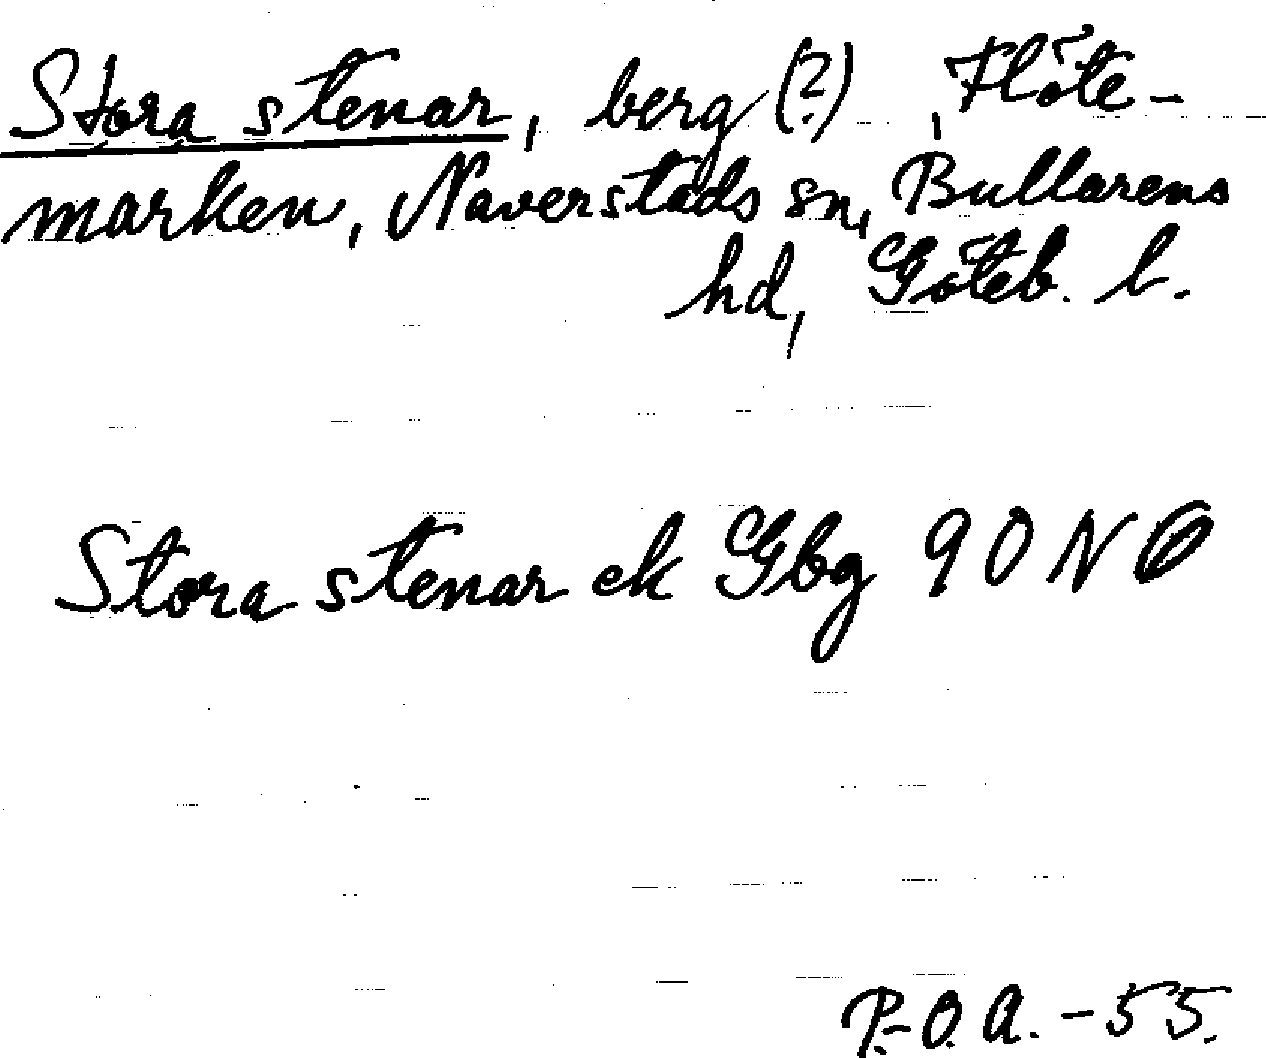 Stora stenar, berg (?), Flöte-
marken, Naverstads sn, Bullarens
hd, Göteb. l.
Stora stenar ek Gbg 90 NO
P.O.A. -55.